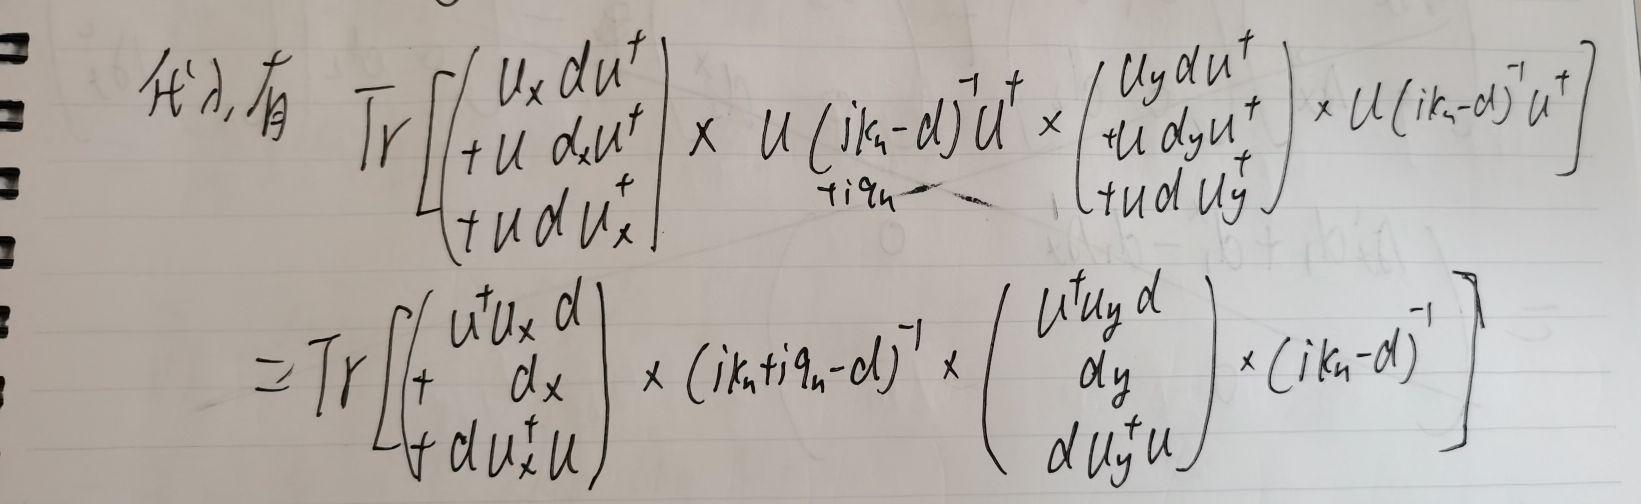 代入,有 Tr[(u_x d u† + u d_x u† + u d u_x†) × u (ik_n + iq_n - d)⁻¹ u† × (u_y d u† + u d_y u† + u d u_y†) × u (ik_n - d)⁻¹ u†]
= Tr[(u†u_x d + d_x + d u_x† u) × (ik_n + iq_n - d)⁻¹ × (u†u_y d d_y d u_y† u) × (ik_n - d)⁻¹]